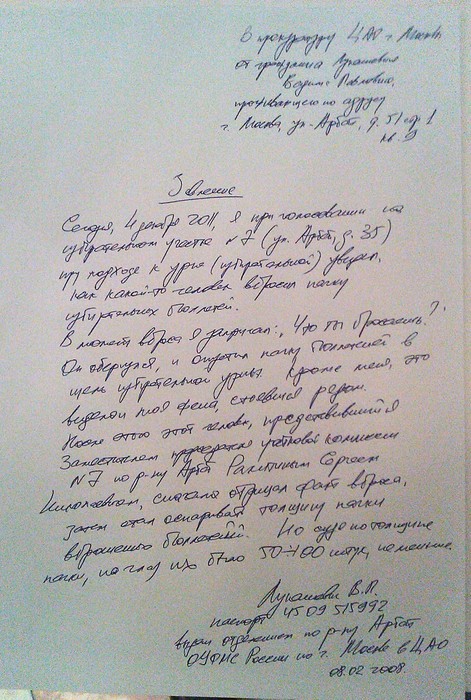 В прокуратуру ЦАО г. Москвы
от гражданина Лукашевича
Вадима Павловича,
проживающего по адресу
г. Москва, ул. Арбат, д. 51 стр 1
кв. 9
Заявление
Сегодня, 4 декабря 2011, я при голосовании на
избирательном участке № 7 (ул. Арбат, д. 35)
при подходе к урне (избирательной) увидел,
как какой-то человек вбросил пачку
избирательных бюллетей.
В момент вброса я закричал: "Что ты бросаешь"?
Он обернулся, и опустил пачку бюллетеней в
щель избирательной урны. Кроме меня, это
видела моя жена, стоявшая рядом.
После этого этот человек, представившийся
Заместителем председателя участковой комиссии
№7 по р-ну Арбат Сергеем
сначала отрицал факт вброса,
затем стал оспаривать толщину пачки
вброшенных бюллетеней. Но судя по толщине
пачки, на глаз их было 50-100 штук, не меньше.
Лукашевич В.П.
паспорт 45 09 515992
выдан отделением по р-ну Арбат
ОУФМС России по г. Москве в ЦАО
08.02.2008.